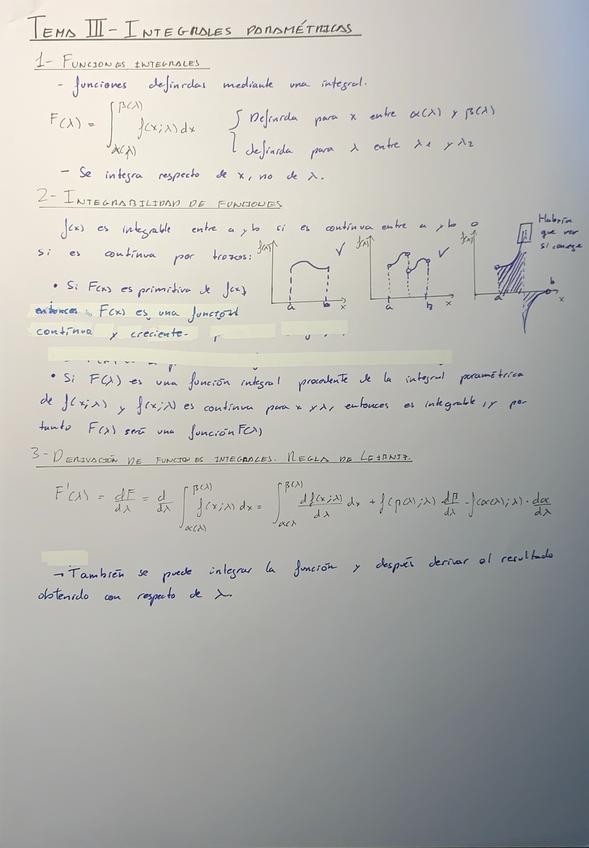 TEMA III - INTEGRALES PARAMÉTRICAS
1- FUNCIONES INTEGRALES
- funciones definidas mediante una integral.
F(λ) = ∫_{α(λ)}^{β(λ)} f(x;λ) dx { Definida para x entre α(λ) y β(λ)
definida para λ entre λ1 y λ2
- Se integra respecto de x, no de λ.
2- INTEGRABILIDAD DE FUNCIONES
f(x) es integrable entre a y b si es continua entre a y b o
si es continua por trozos:
f(x) a b x ✓
f(x) a b x ✓
f(x) a b x
Habría
que ver
si converge
• Si F(x) es primitiva de f(x),
entonces F(x) es una función
continua y creciente.
• Si F(λ) es una función integral procedente de la integral paramétrica
de f(x;λ) y f(x;λ) es continua para x y λ, entonces es integrable, y por
tanto F(λ) será una función F(λ)
3- DERIVACIÓN DE FUNCIONES INTEGRALES. REGLA DE LEIBNIZ.
F'(λ) = dF/dλ = d/dλ ∫_{α(λ)}^{β(λ)} f(x;λ) dx = ∫_{α(λ)}^{β(λ)} df(x;λ)/dλ dx + f(β(λ);λ) dβ/dλ - f(α(λ);λ) · dα/dλ
→ También se puede integrar la función y después derivar el resultado
obtenido con respecto de λ.